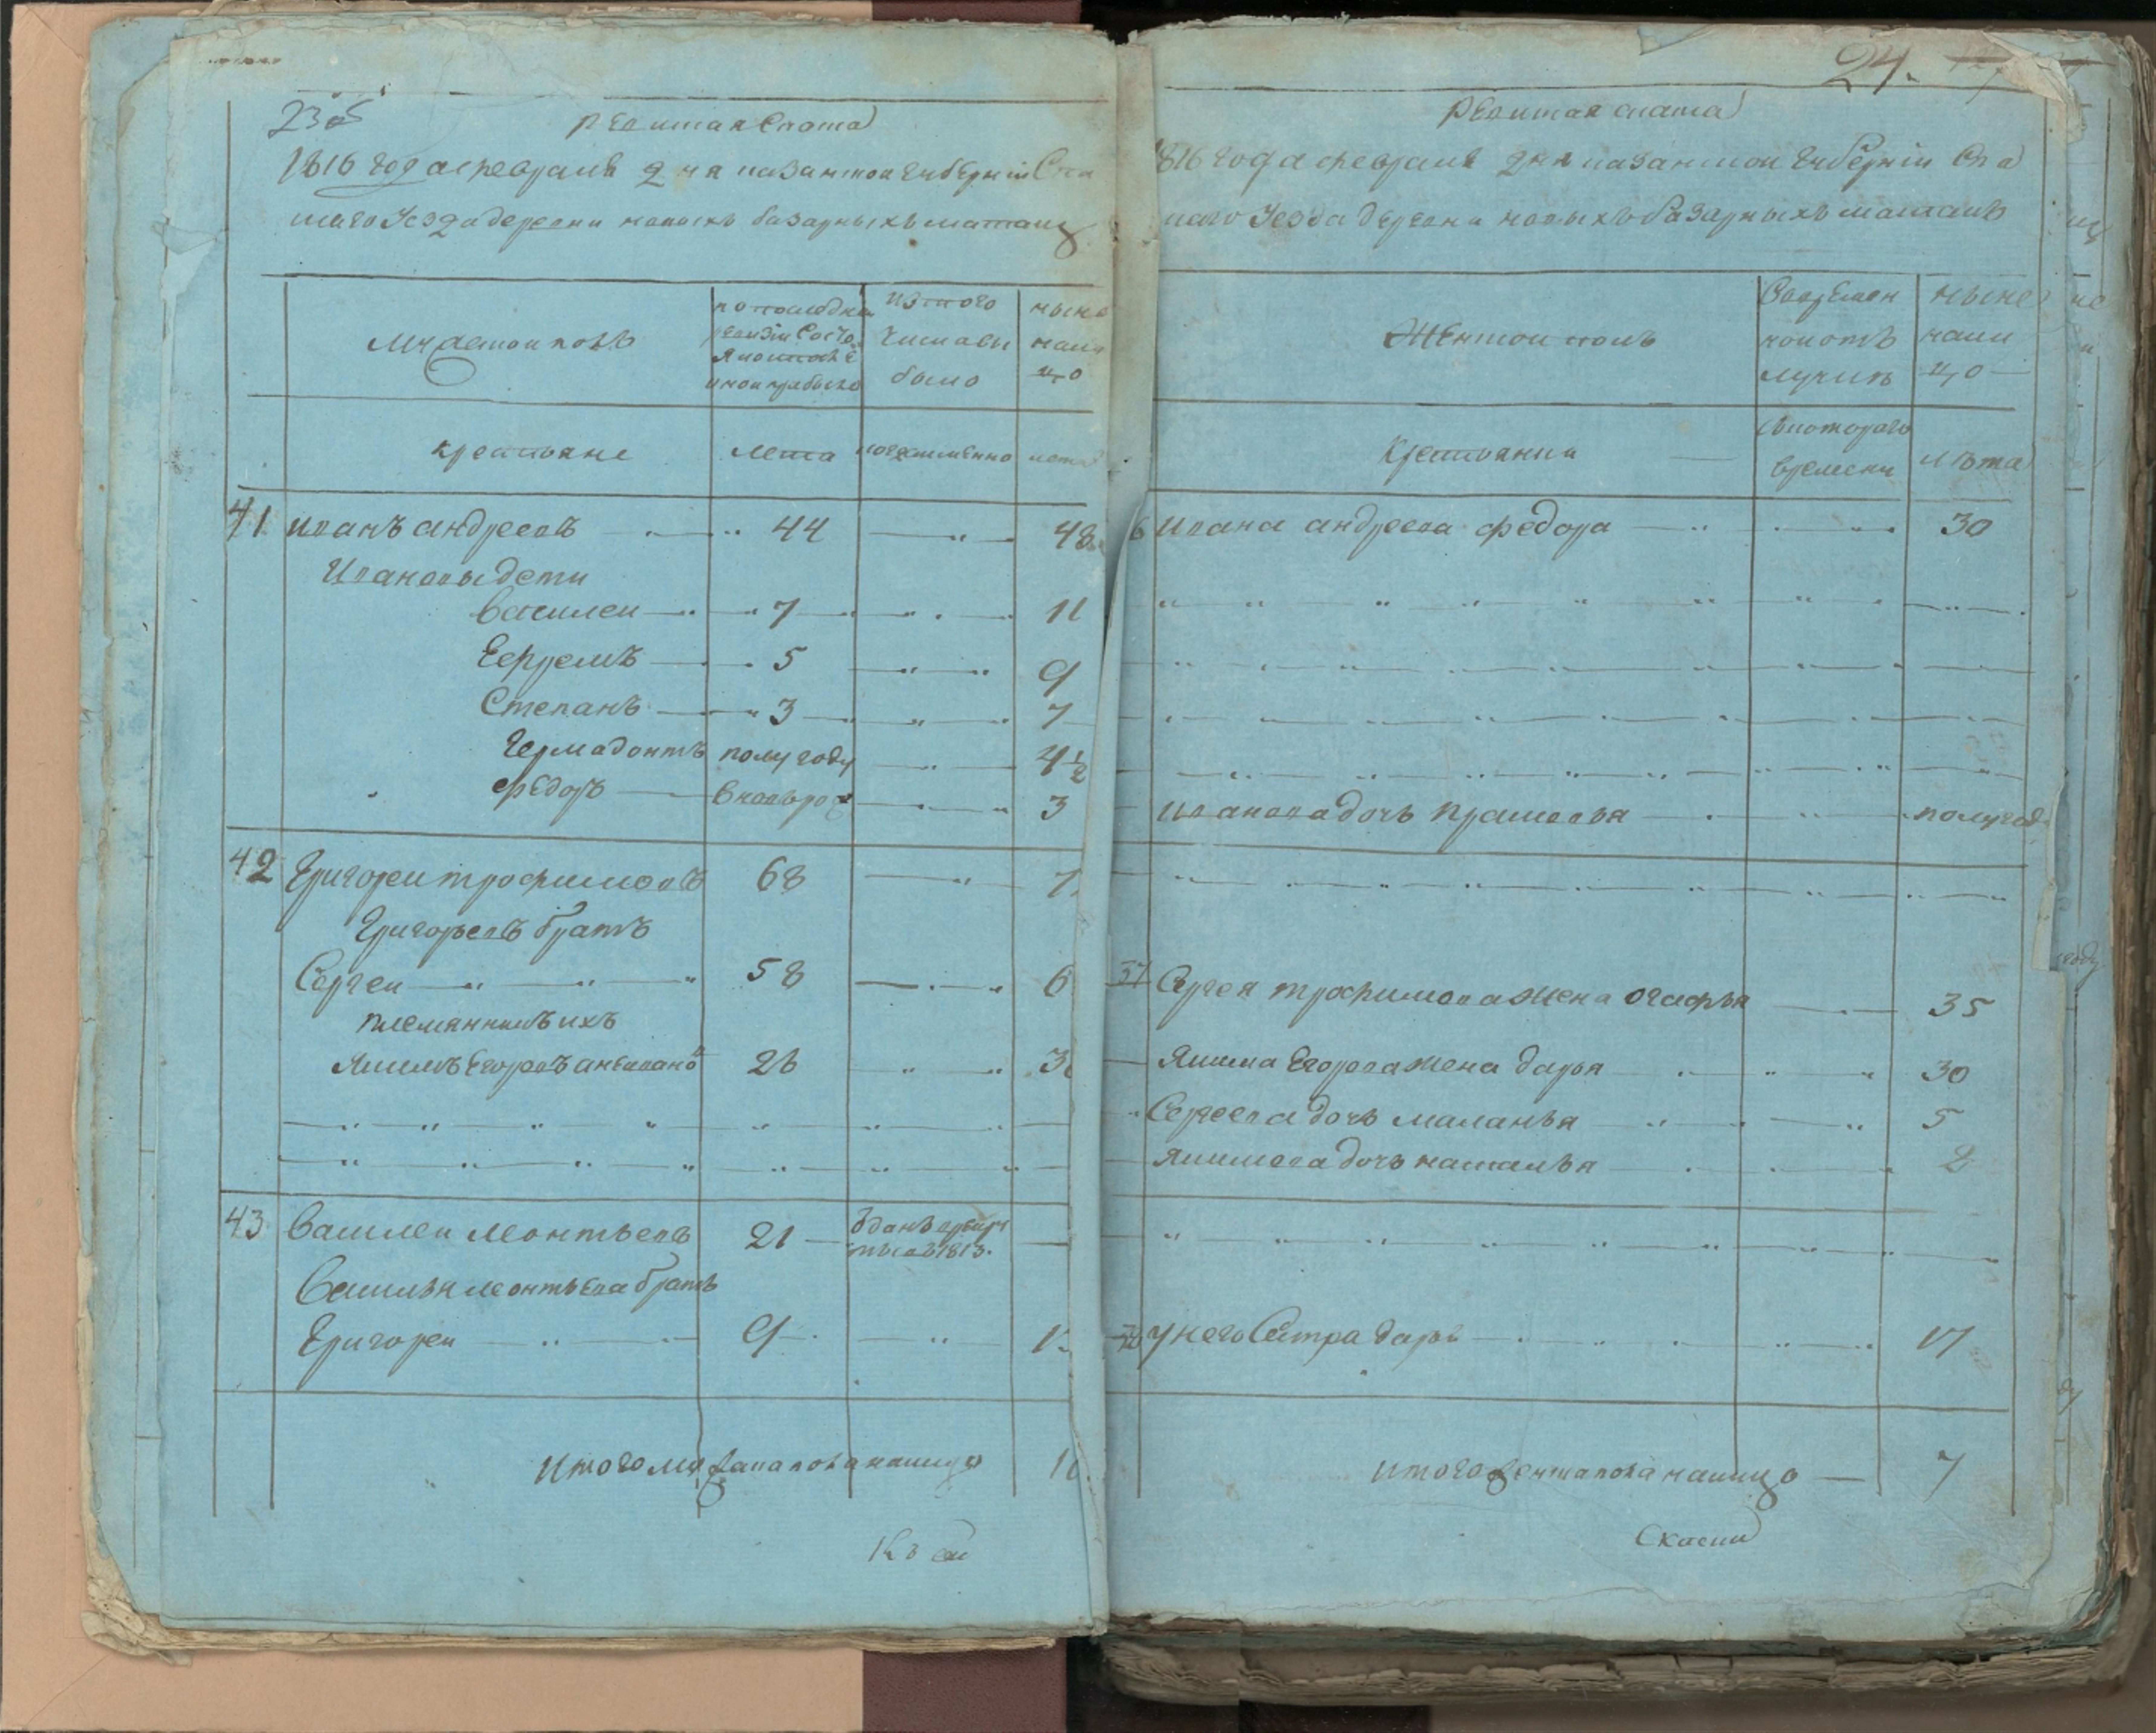 23об
Ревиская Скаска
1816 года февраля 2 ня казанской губернии Спа
скаго Уезда деревни новыхъ базарныхъ матакъ
Мужеской полъ
по последней
ревизіи состо
яло и после
оной прибыло
изтого
числа вы
было
ныне
нали
цо
крестьяне
лета
когда имянно
лета
41 иванъ андреевъ 44 48
Ивановы дети
василеи 7 11
Ефремъ 5 9
Степанъ 3 7
Гермадонтъ полу году 4 1/2
федоръ вновьрож 3
42 Григореи трофимовъ 68 7
Григорьевъ братъ
Сергеи 58 6
племянникъ ихъ
Якимъ Егоровъ 26 3
43 Василеи леонтьевъ 21 1813.
Василья леонтьева братъ
Григореи 9 1
Итого муж на лицо 1
24.
Ревиская скаска
1816 года февраля 2 ня казанской губернии Спа
скаго Уезда деревни новыхъ базарныхъ матакъ
Женской полъ
Вовремен
ной отъ
лучкъ
ныне
нали
цо
Крестьянки
скотораго
времени
лѣта
Ивана андреева федора 30
Иванова дочь прасковья полугод
37 Сергея трофимова жена огафья 35
Якима Егорова жена дарья 30
Сергеева дочь маланья 5
Якимова дочь наталья 2
унего Сестра дарья 17
итого женска пола налицо 7
Скаски